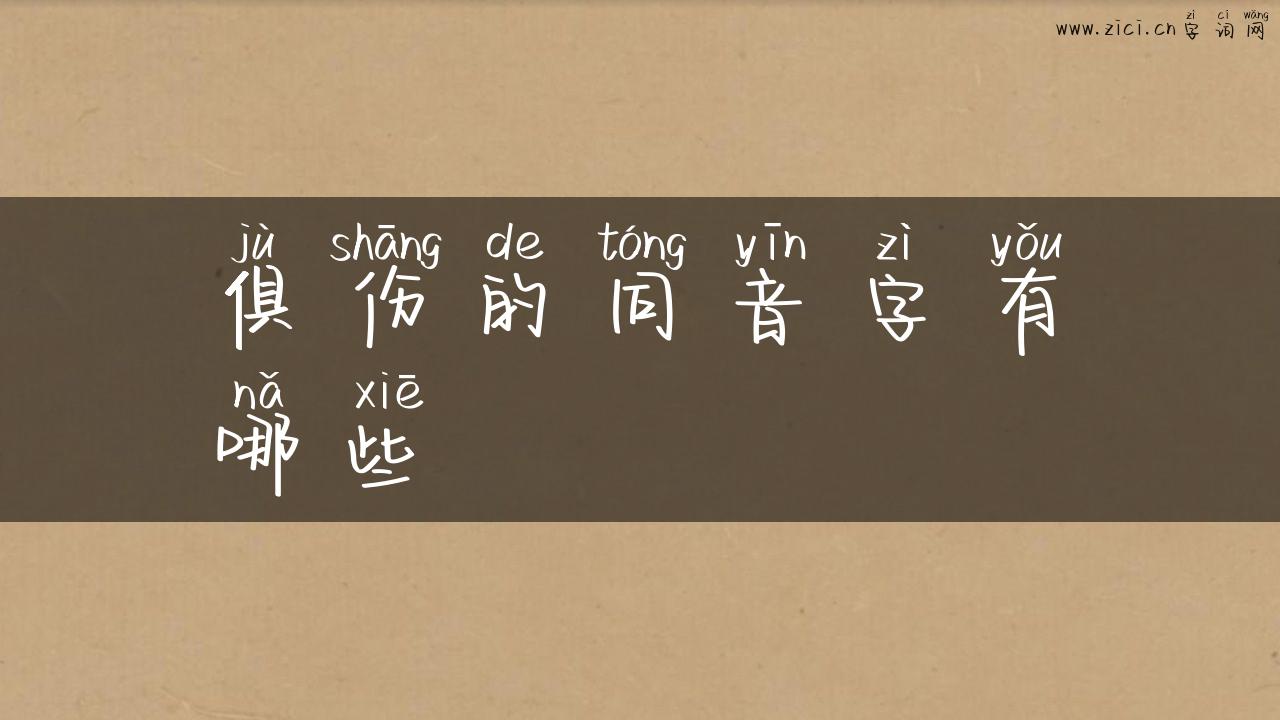 zì cí wǎng
www.zici.cn 字 词 网
jù shāng de tóng yīn zì yǒu
俱 伤 的 同 音 字 有
nǎ xiē
哪 些